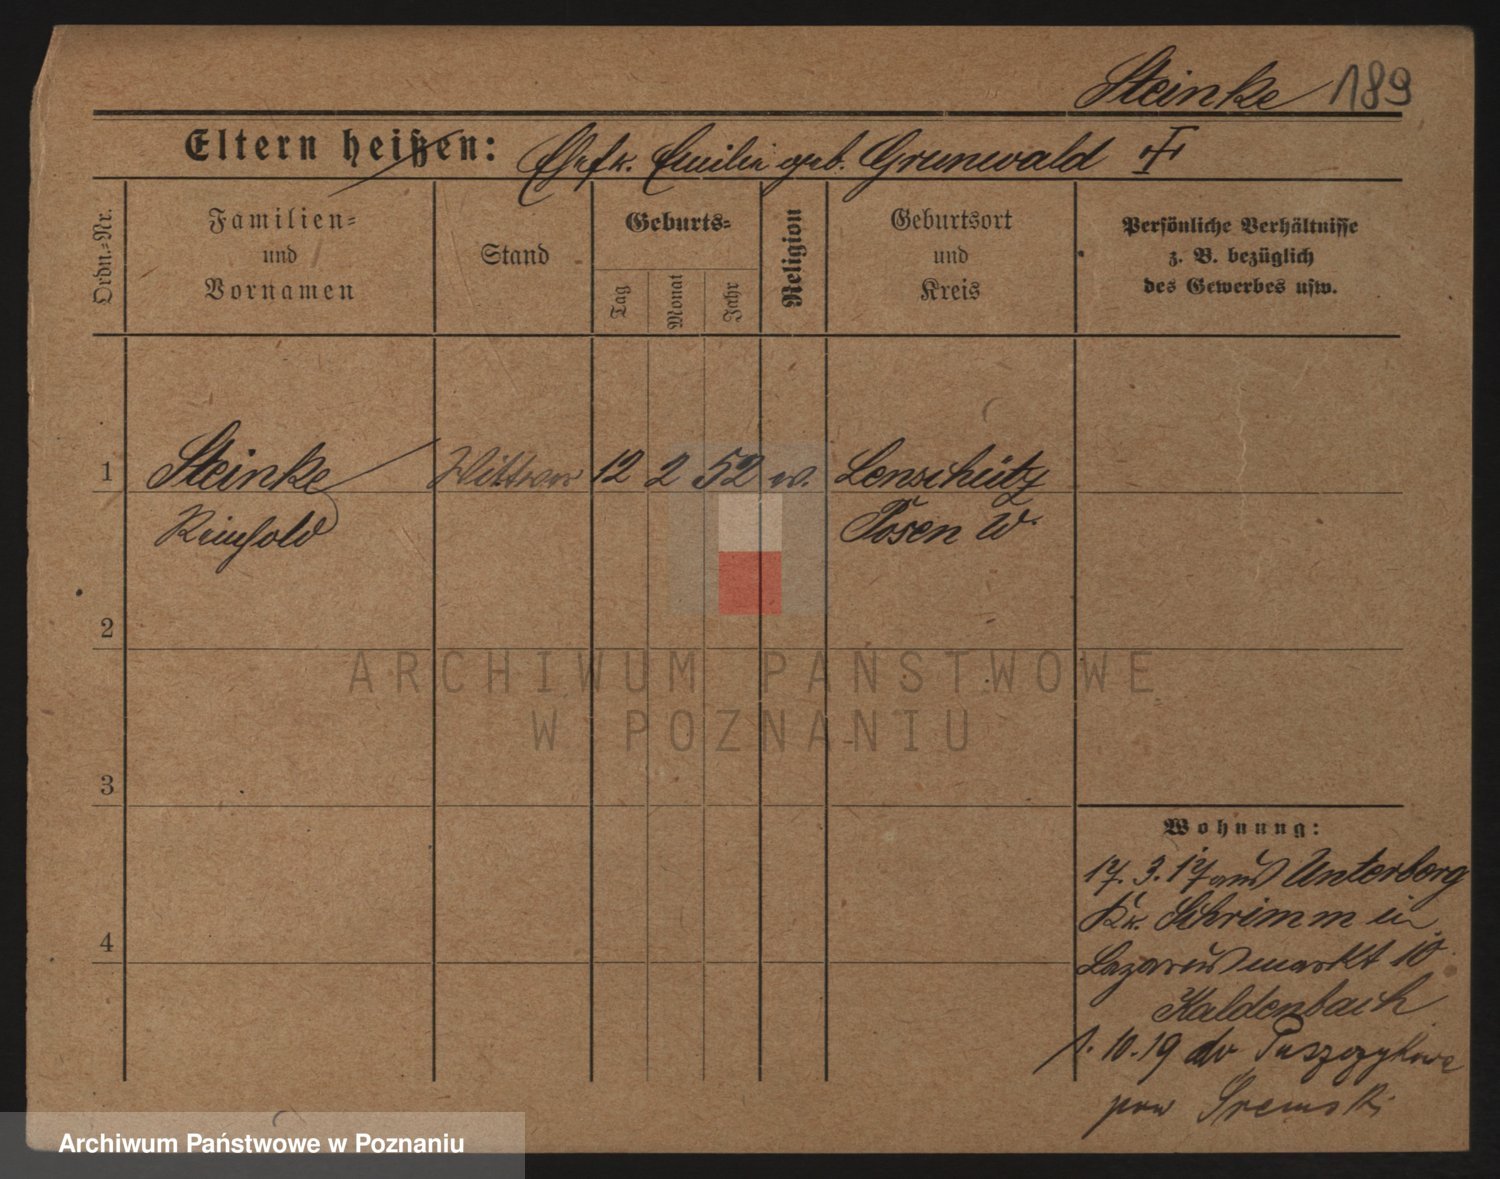 Steinke 189
Eltern heißen: Ehefr. Emilie geb. Grunwald †
Ordn.-Nr.
Familien-
und
Vornamen
Stand
Geburts-
Tag
Monat
Jahr
Religion
Geburtsort
und
Kreis
Persönliche Verhältnisse
z. B. bezüglich
des Gewerbes usw.
1 Steinke Wittwer 12 2 52 ev. Lenschütz
Reinhold Posen W.
2
ARCHIWUM PAŃSTWOWE
W POZNANIU
3
Wohnung:
17. 3. 17 aus Unterberg
Kr. Schrimm in
4
Lazarusmarkt 10
Kaldenbach
1. 10. 19 do Puszczykowa
pow Śremski
Archiwum Państwowe w Poznaniu